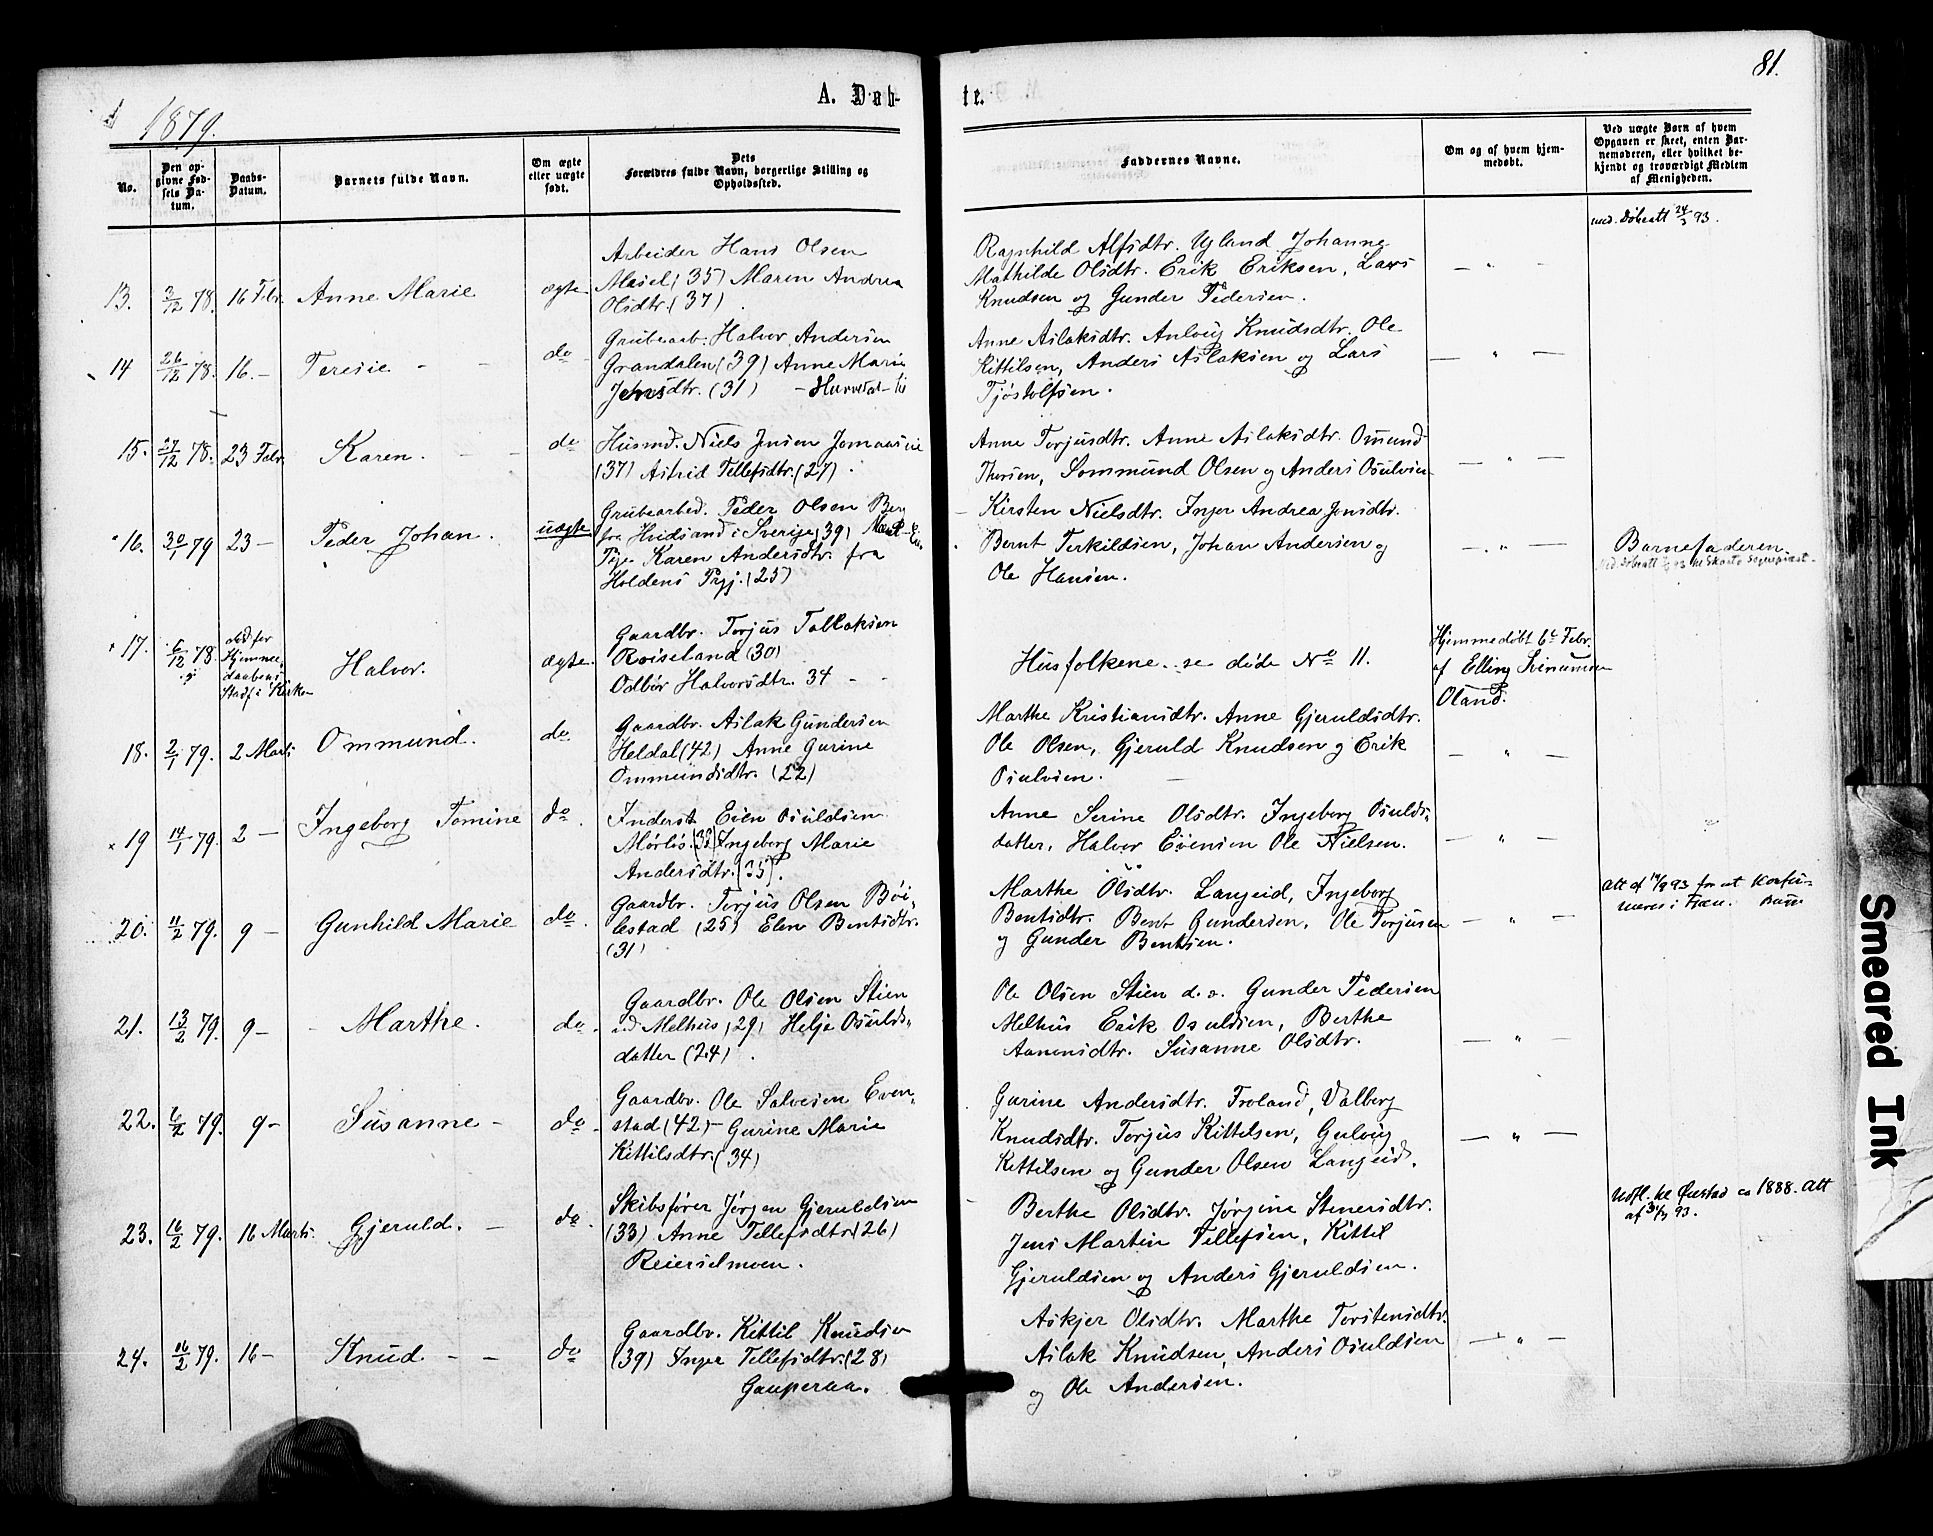 1879.
A. Døb-
te.
81.
No.
Den op-
givne Fød-
sels Da-
tum.
Daabs-
Datum.
Barnets fulde Navn.
Om ægte
eller uægte
født.
Dets
Forældres fulde Navn, borgerlige Stilling og
Opholdssted.
Faddernes Navne.
Om og af hvem hjem-
medøbt.
Ved uægte Børn af hvem
Opgaven er skeet, enten Bar-
nemoderen, eller hvilket be-
kjendt og troværdigt Medlem
af Menigheden.
13. 3/12 78. 16 Febr. Anne Marie ægte
Arbeider Hans Olsen
Mesel (35) Maren Andrea
Olsdtr. (37)
Ragnhild Alfsdtr. Ugland Johanne
Mathilde Olsdtr. Erik Eriksen, Lars
Knudsen og Gunder Pedersen.
— " —
med. Døbeatt 24/3 93.
14 26/12 78. 16. — Teresie - - do
Grubearb. Halvor Andersen
Grandalen (39) Anne Marie
Jensdtr. (31)
Anne Aslaksdtr. Anlaug Knudsdtr. Ole
Kittilsen, Anders Aslaksen og Lars
Tjøstolfsen.
— " —
15. 27/12 78. 23 Febr. Karen. - - do
Husmd. Niels Jensen Jomaasnie
(37) Astrid Tellefsdtr. (27).
Anne Torjusdtr. Anne Aslaksdtr. Omund
Thorsen, Sommund Olsen og Anders Osulvsen
— " —
16. 30/1 79 23 — Peder Johan. uægte
Grubearbed. Peder Olsen Berg
fra Hvidsand i Sverige (39)
Pige Karen Andersdtr. fra
Holdens Prgj. (25)
Kirsten Nielsdtr. Inger Andrea Jensdtr.
Bernt Terkildsen, Johan Andersen og
Ole Hansen.
— " —
Barnefaderen.
17. 6/12 78.
Hjemme-
daabens
Stadf. i Kirken
Halvor. ægte.
Gaardbr. Torjus Tallaksen
Røiseland (30)
Odbør Halvorsdtr. 34 - -
Husfolkene. se døde No 11.
Hjemmedøbt 6te Febr.
af Elling Svenumsen
Oland.
18. 2/1 79. 2 Marts Ommund. do
Gaardbr. Aslak Gundersen
Heldal (42) Anne Gurine
Ommundsdtr. (22)
Marthe Kristiansdtr. Anne Gjeruldsdtr.
Ole Olsen, Gjeruld Knudsen og Erik
Osulvsen.
— " —
19 14/1 79. 2 — Ingeborg Tomine do.
Inderst Even Osuldsen
Mørlös. (32) Ingeborg Marie
Andersdtr. (35).
Anne Serine Olsdtr. Ingeborg Osulds-
datter, Halvor Evensen Ole Nielsen.
— " —
20. 11/2 79. 9 — Gunhild Marie do.
Gaardbr. Torjus Olsen Bøi-
lestad (25) Elen Bentsdtr.
(31)
Marthe Olsdtr. Langeid, Ingeborg
Bentsdtr. Bent Gundersen, Ole Torjusen
og Gunder Bentsen.
— " —
Att af 14/9 93 for at Konfir-
meres i
21. 13/2 79. 9 - - Marthe. do.
Gaardbr. Ole Olsen Stien
ved Melhus (29) Helje Osulds-
datter (24).
Ole Olsen Stien d. æ. Gunder Pedersen
Melhus Erik Osuldsen, Berthe
Aanensdtr. Susanne Olsdtr.
— " —
22. 6/2 79. 9 - Susanne - do.
Gaardbr. Ole Salvesen Even-
stad (42) - Gurine Marie
Kittilsdtr. (34)
Gurine Andersdtr. Froland, Valborg
Knudsdtr. Torjus Kittelsen, Gulvig
Kettilsen og Gunder Olsen Langeid.
— " —
23. 16/2 79. 16 Marts. Gjeruld. - do.
Skibsfører Jørgen Gjeruldsen
(33) Anne Tellefsdtr. (26)
Reierselmoen.
Berthe Olsdtr. Jørgine Stenersdtr.
Jens Martin Tellefsen, Kittil
Gjeruldsen og Anders Gjeruldsen.
Udfl. til Øiestad ca 1888. Att
24. 16/2 79. 16 - Knud. - - do
Gaardbr. Kittil Knudsen
(39) Inger Tellefsdtr. (28)
Gauperaa.
Askjer Olsdtr. Marthe Torstensdtr.
Aslak Knudsen, Anders Osuldsen
og Ole Andersen.
— " —
Smeared Ink